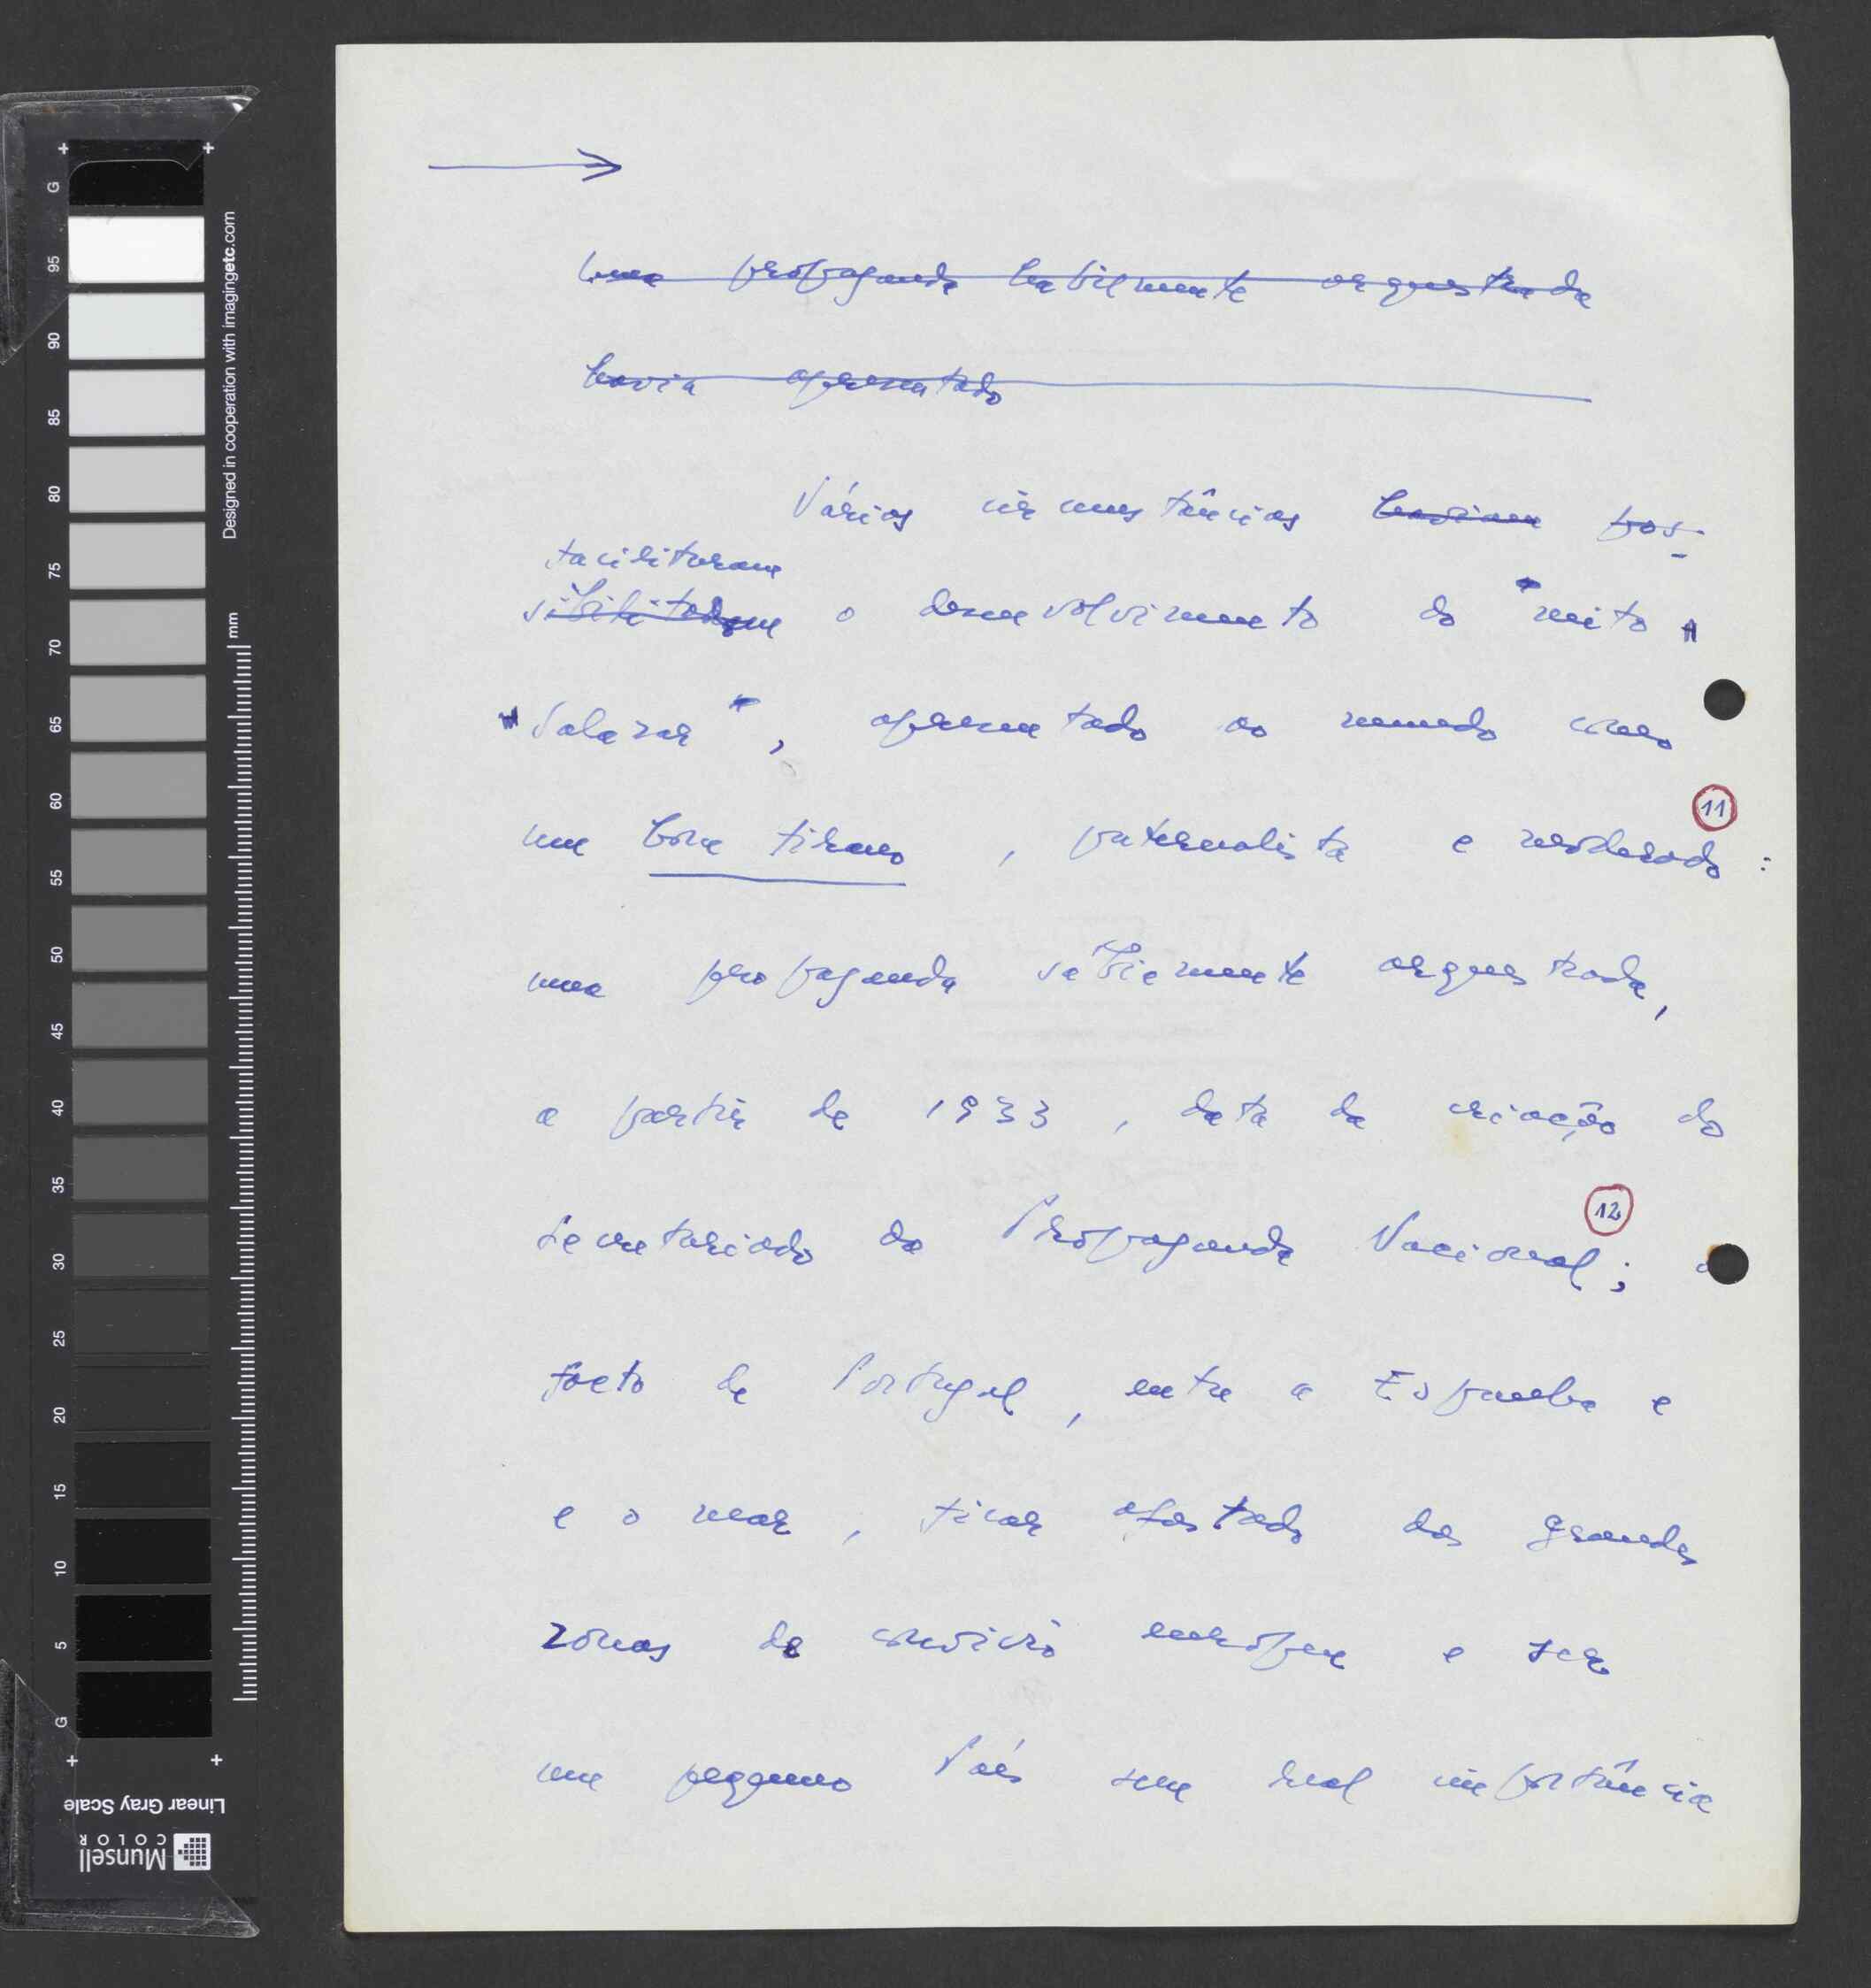 Uma propaganda habilmente orquestrada
havia apresentado
Várias circunstâncias haviam pos-
facilitaram
sibilitado o desenvolvimento do "mito"
"Salazar", apresentado ao mundo como
11
um bom tirano, paternalista e moderado:
uma propaganda sabiamente orquestrada,
a partir de 1933, data da criação do
12
Secretariado da Propaganda Nacional; o
facto de Portugal, entre a Espanha e
e o mar, ficar afastado das grandes
zonas de convívio europeu e ser
um pequeno País sem real importância
G
95
90
85
80
75
70
65
60
55
50
45
40
35
30
25
20
15
10
5
G
Designed in cooperation with imagingetc.com
mm
Linear Gray Scale
Munsell
COLOR